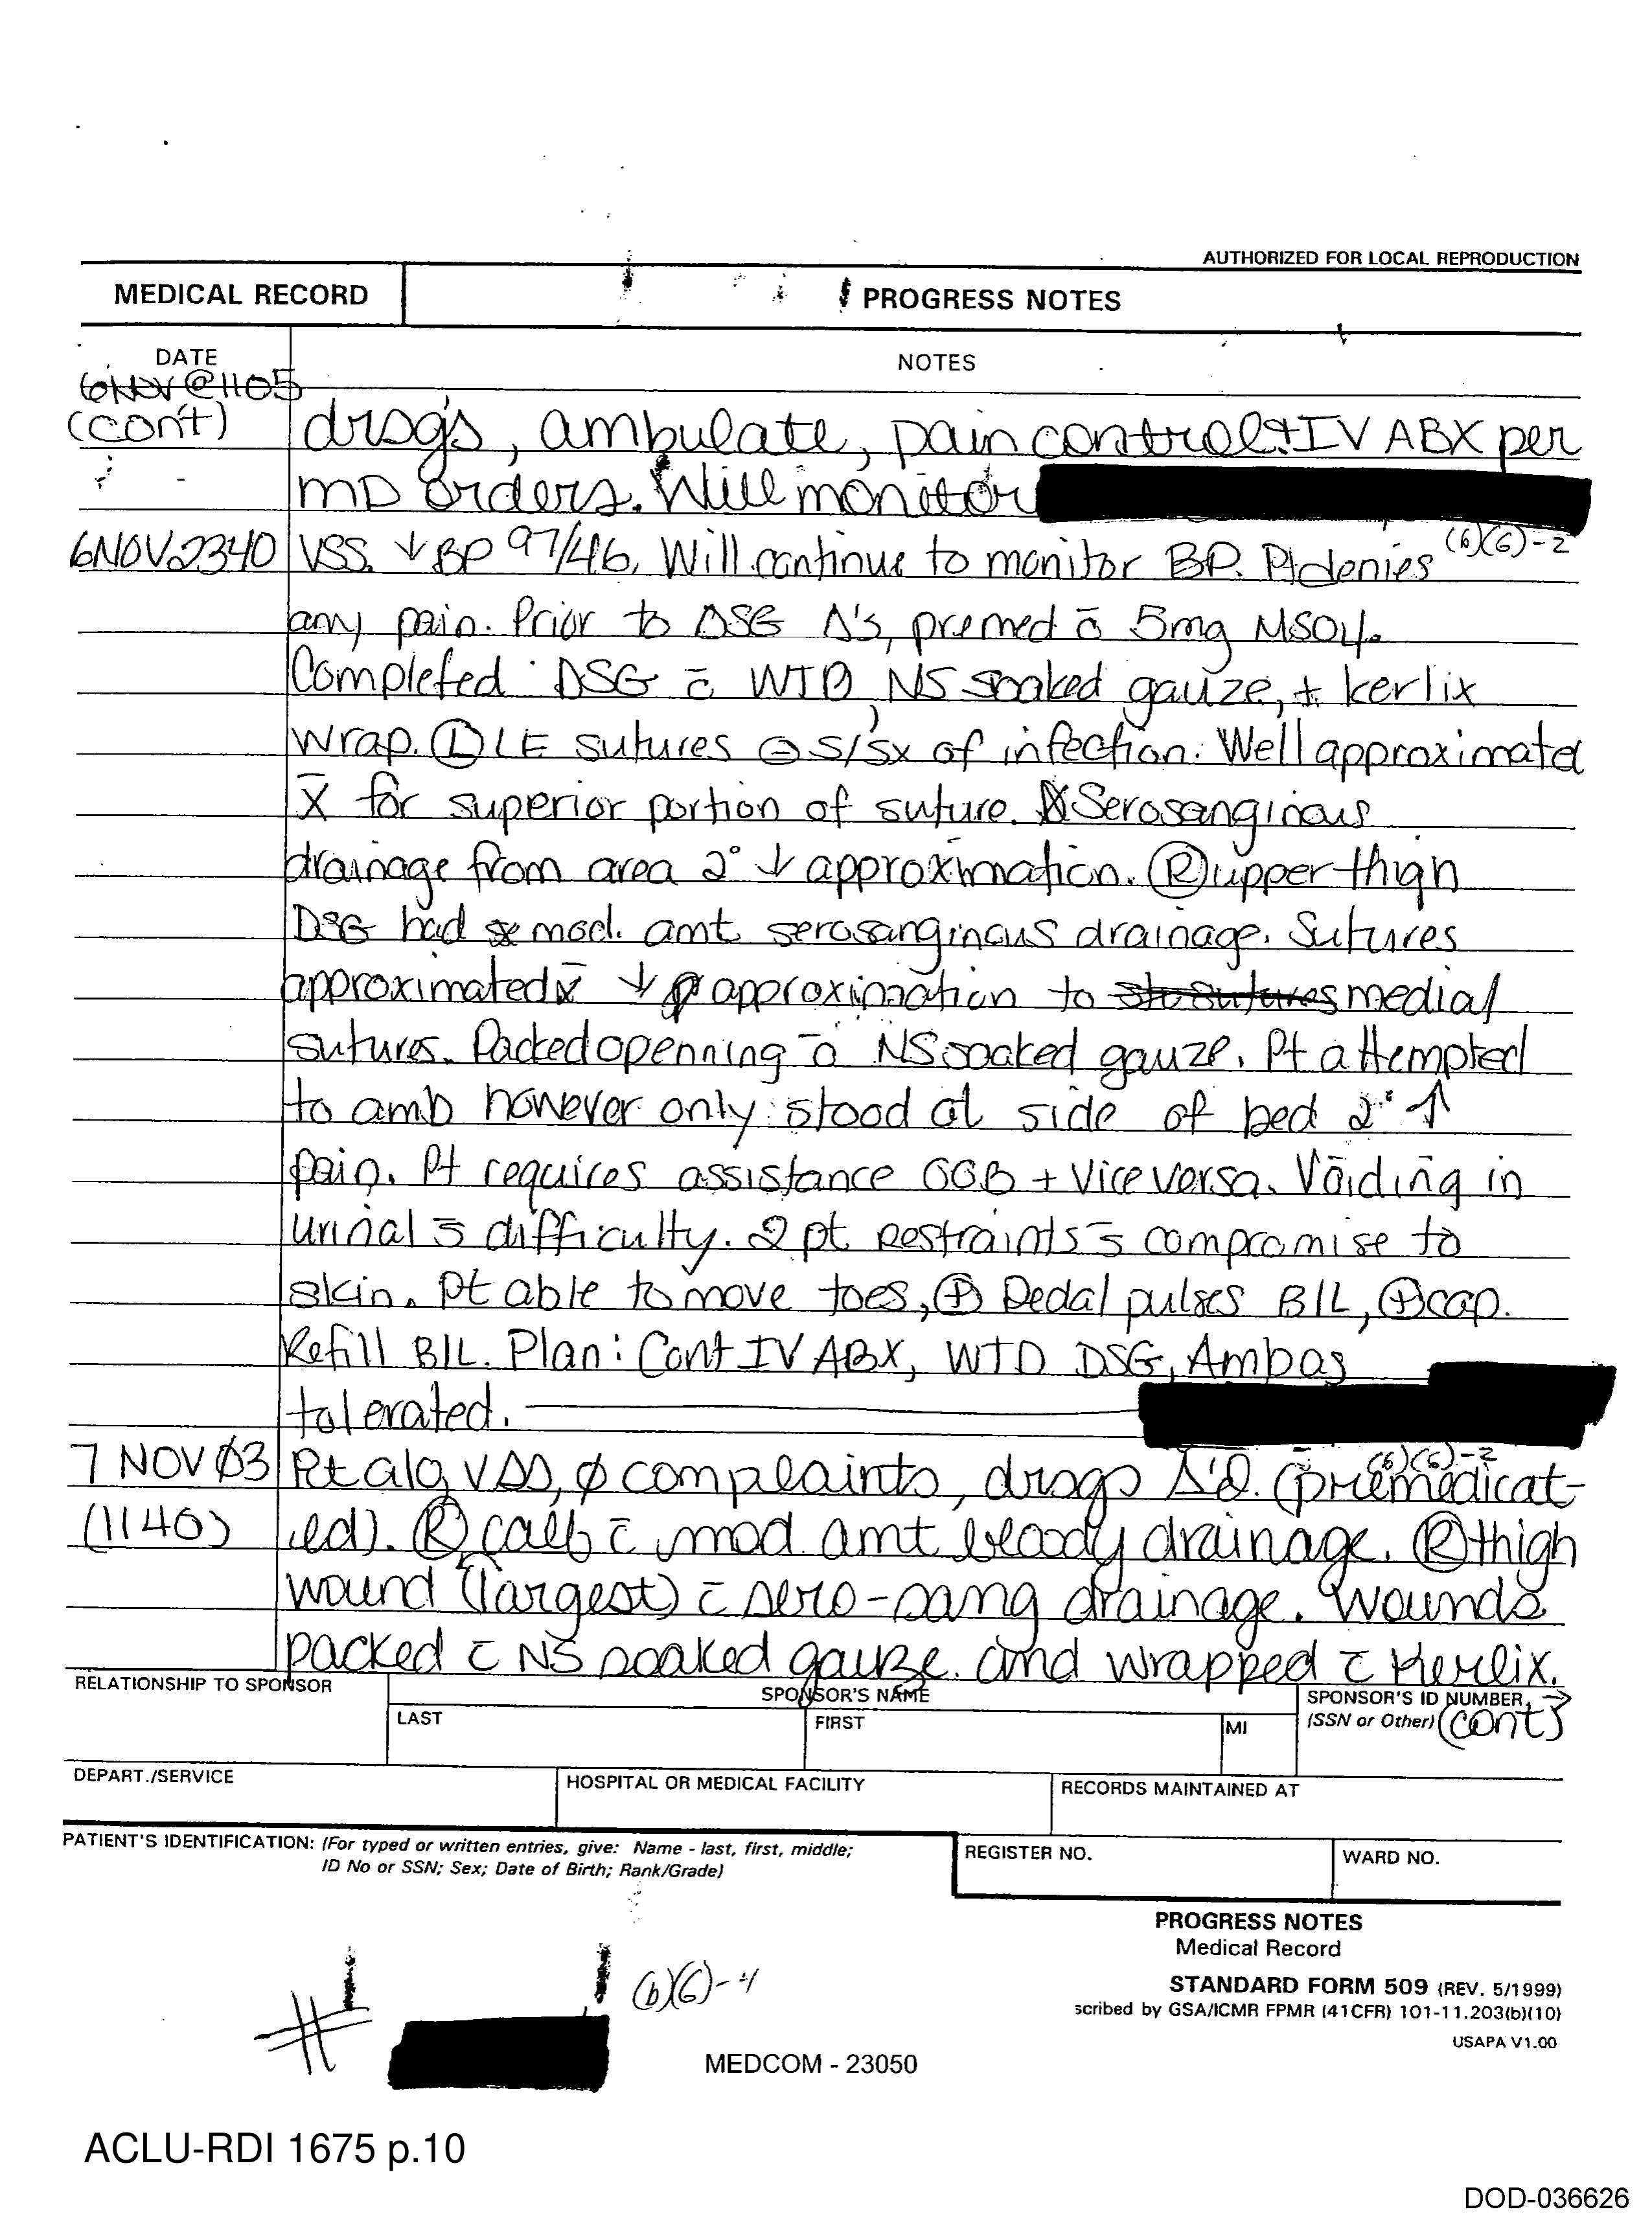 AUTHORIZED FOR LOCAL REPRODUCTION
MEDICAL RECORD PROGRESS NOTES
DATE NOTES
6NOV@1105
(con't) drsg's, ambulate, pain control + IV ABX per
MD orders. Will monitor
(b)(6)-2
6NOV2340 VSS. ↓BP 97/46. Will continue to monitor BP. Pt denies
any pain. Prior to DSG Δ's, premed c̄ 5mg MSO4.
Completed DSG c̄ WTD, NS soaked gauze, + kerlix
wrap. Ⓛ LE sutures ⊖ S/Sx of infection. Well approximated
x̄ for superior portion of suture. Serosanginous
drainage from area 2° ↓ approximation. Ⓡ upper thigh
DSG had mod. amt serosanginous drainage. Sutures
approximated x̄ ↓ approximation to medial
sutures. Packed openning c̄ NS soaked gauze. Pt attempted
to amb however only stood at side of bed 2° ↑
pain. Pt requires assistance OOB + vice versa. Voiding in
urinal s̄ difficulty. 2 pt restraints s̄ compromise to
skin. Pt able to move toes, ⊕ Pedal pulses B/L, ⊕ cap.
Refill B/L. Plan: Cont IV ABX, WTD DSG, Amb as
tolerated.
(b)(6)-2
7 NOV Ø3 Pt a/o, VSS, ø complaints, drsgs Δ'd. (premedicat-
(1140) ed). Ⓡ calf c̄ mod amt bloody drainage. Ⓡ thigh
wound (largest) c̄ sero-sang drainage. Wounds
packed c̄ NS soaked gauze. and wrapped c̄ Kerlix.
RELATIONSHIP TO SPONSOR SPONSOR'S NAME SPONSOR'S ID NUMBER →
LAST FIRST MI (SSN or Other) (cont)
DEPART./SERVICE HOSPITAL OR MEDICAL FACILITY RECORDS MAINTAINED AT
PATIENT'S IDENTIFICATION: (For typed or written entries, give: Name - last, first, middle;
ID No or SSN; Sex; Date of Birth; Rank/Grade)
REGISTER NO. WARD NO.
PROGRESS NOTES
Medical Record
STANDARD FORM 509 (REV. 5/1999)
scribed by GSA/ICMR FPMR (41CFR) 101-11.203(b)(10)
USAPA V1.00
# (b)(6)-4
MEDCOM - 23050
ACLU-RDI 1675 p.10
DOD-036626